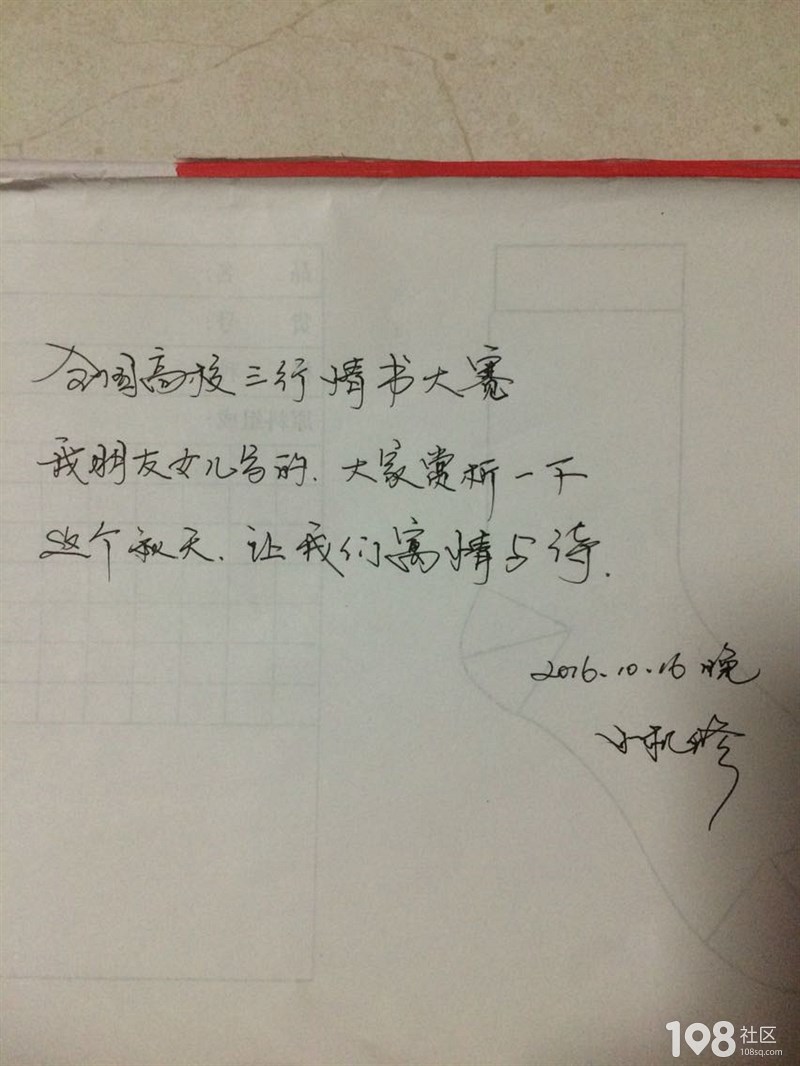 全国高校三行情书大赛
我朋友女儿写的.大家赏析一下
这个秋天.让我们寓情与诗.
2016.10.16晚
小机修
108社区
108sq.com